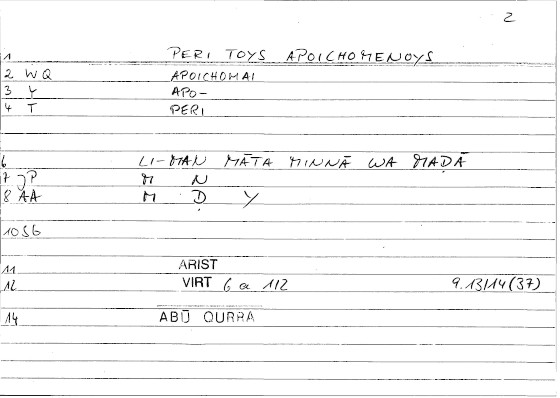 2
1 PERI TOYS APOICHOMENOYS
2 WQ APOICHOMAI
3 Y APO-
4 T PERI
6 LI-MAN MĀTA MINNĀ WA MAḌĀ
7 JP M N
8 AA M Ḍ Y
10 SG
11 ARIST
12 VIRT 6 a 1/2 9.13/14 (37)
14 ABŪ QURRA